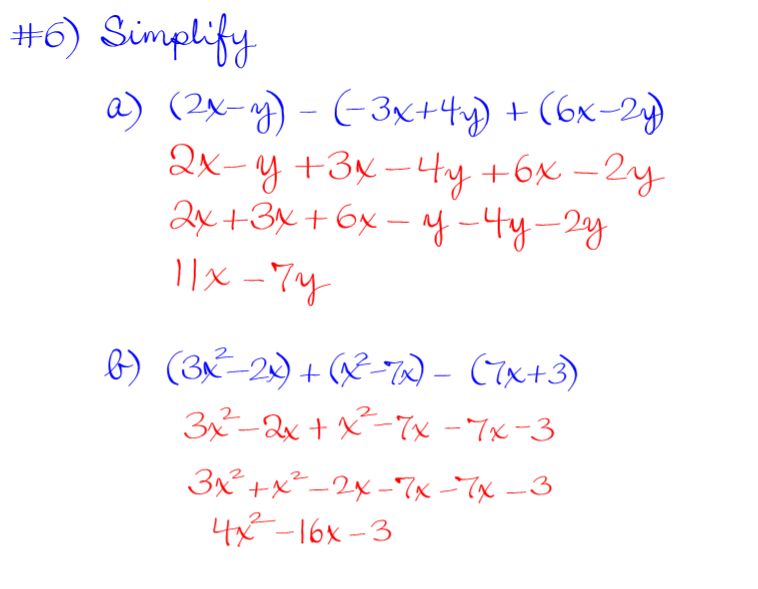 #6) Simplify
a) (2x-y) - (-3x+4y) + (6x-2y)
2x-y+3x-4y+6x-2y
2x+3x+6x-y-4y-2y
11x-7y
b) (3x²-2x) + (x²-7x) - (7x+3)
3x²-2x+x²-7x-7x-3
3x²+x²-2x-7x-7x-3
4x²-16x-3